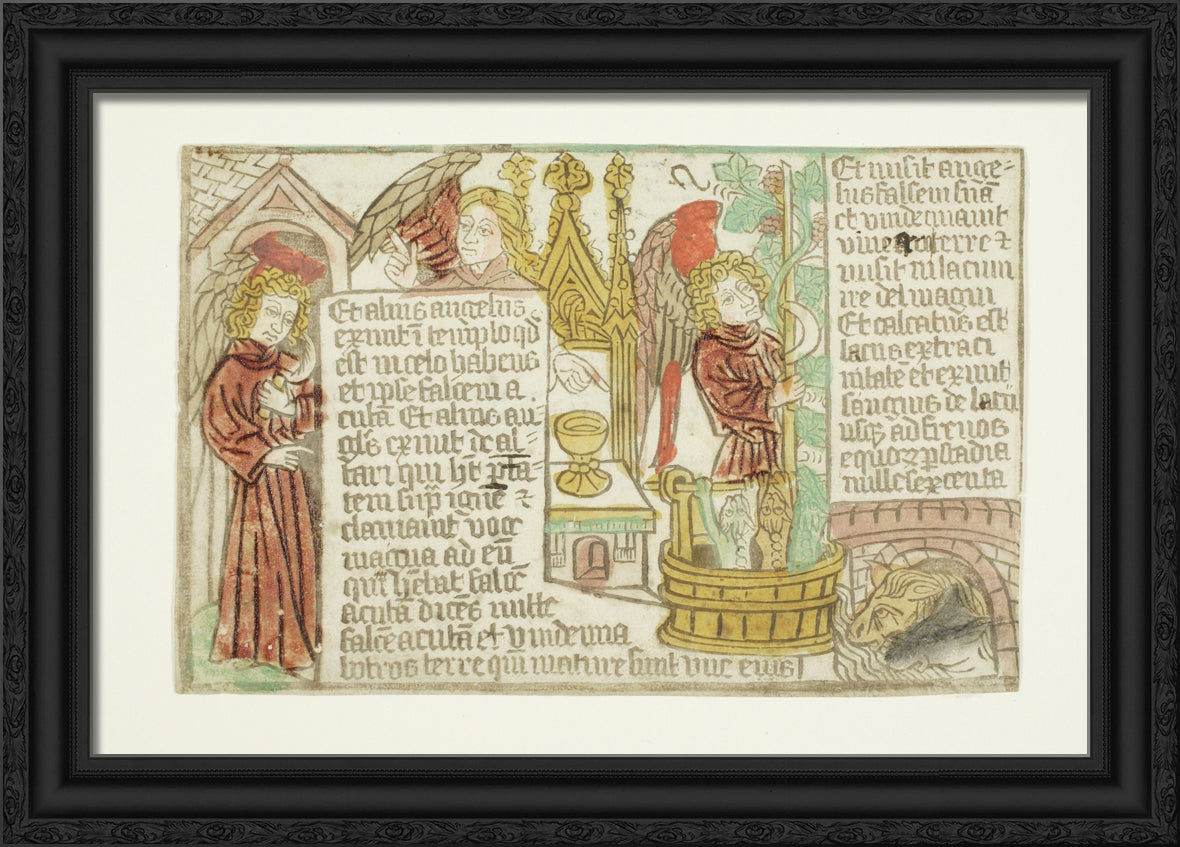 Et alius angelus
exiuit ī templo qd
est in celo habens
et ipse falcem a
cutā Et alius an=
gls̄ exiuit de al=
tari qui ht̄ ptā=
tem sup̄ ignē ⁊
clamauit voce
magna ad eū
qui hēbat falcē
acutā dicēs mitte
falcē acutā et vindemia
botros terre qm̄ mature sunt vue eius
Et misit ange=
lus falsem suā
et vindemauit
vineam terre ⁊
misit in lacum
ire dei magni
Et calcatus est
lacus extra ci
uitatē et exiuit
sanguis de lacu
usqȝ ad frenos
equoꝝ p stadia
mille sexcenta